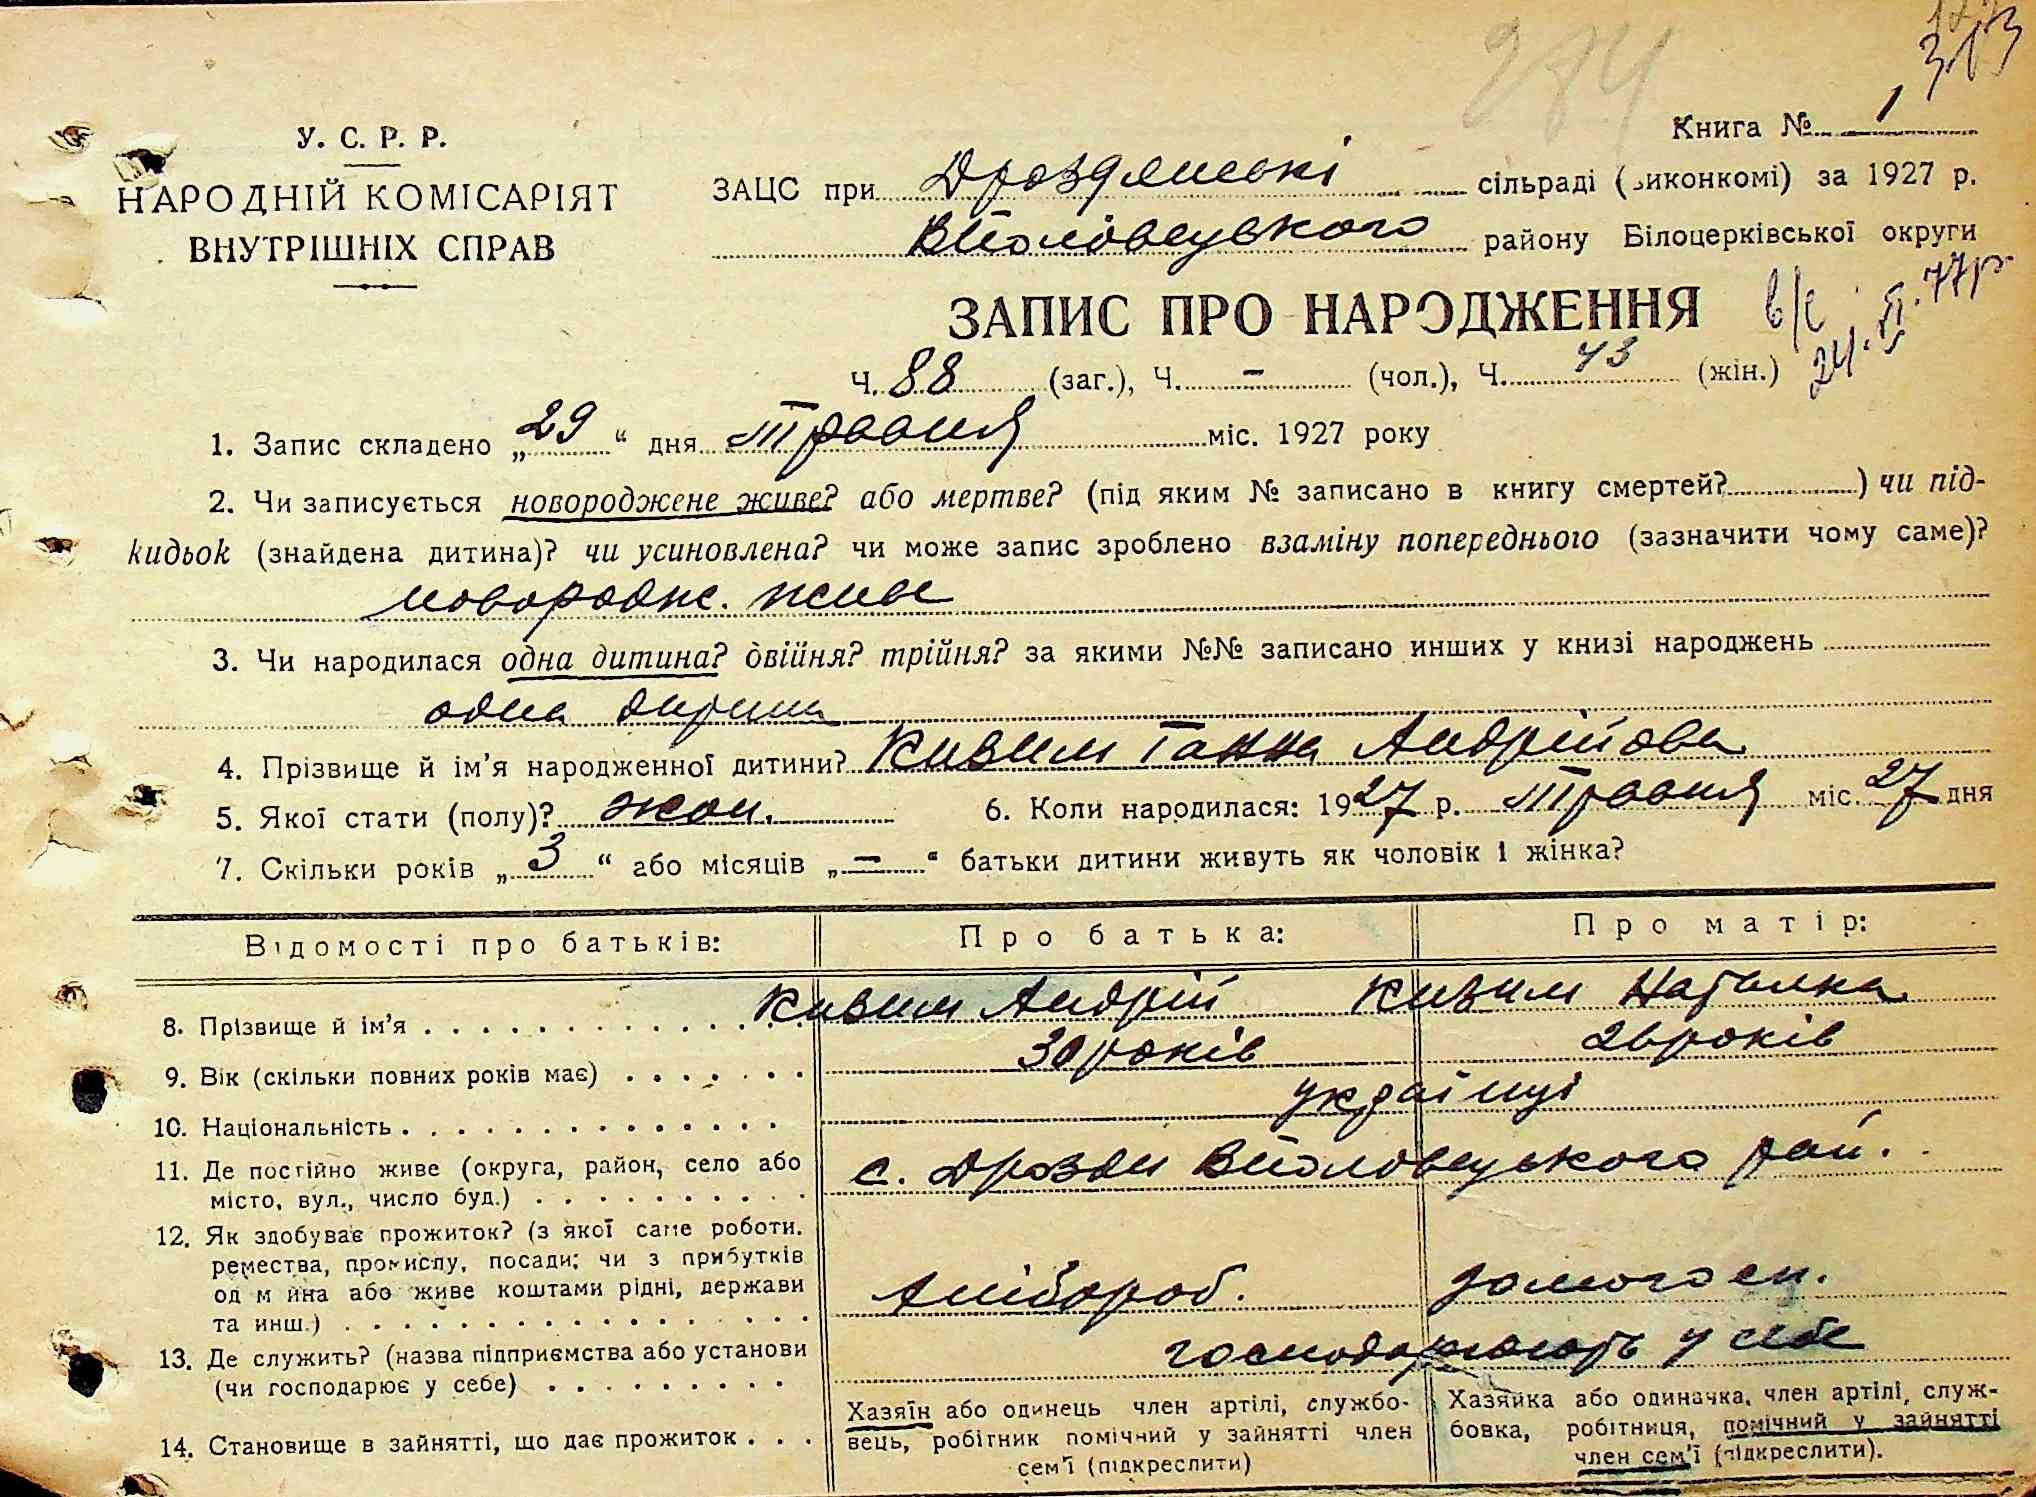 313
274
У. С. Р. Р.
НАРОДНІЙ КОМІСАРІЯТ
ВНУТРІШНІХ СПРАВ
Книга № 1
ЗАЦС при Дроздянські сільраді (виконкомі) за 1927 р.
районy Білоцерківської округи
ЗАПИС ПРО НАРОДЖЕННЯ
в/с 24.VI.77р
Ч. 88 (заг.), Ч. – (чол.), Ч. 43 (жін.)
1. Запис складено „29“ дня Травня міс. 1927 року
2. Чи записується новороджене живе? або мертве? (під яким № записано в книгу смертей? ) чи під-
кидьок (знайдена дитина)? чи усиновлена? чи може запис зроблено взаміну попереднього (зазначити чому саме)?
новородж. живе
3. Чи народилася одна дитина? двійня? трійня? за якими №№ записано инших у книзі народжень
одна дитина
4. Прізвище й ім’я народженної дитини? Кизим Ганна Андрійова
5. Якої стати (полу)? жон. 6. Коли народилася: 1927 р. Травня міс. 27 дня
7. Скільки років „3“ або місяців „–“ батьки дитини живуть як чоловік і жінка?
Відомості про батьків: Про батька: Про матір:
8. Прізвище й ім’я Кизим Андрій Кизим Наталка
9. Вік (скільки повних років має) 30 років 26 років
10. Національність українці
11. Де постійно живе (округа, район, село або
місто, вул., число буд.) с. Дрозди рай.
12. Як здобуває прожиток? (з якої саме роботи.
ремества, промислу, посади; чи з прибутків
од майна або живе коштами рідні, держави
та инш.) хлібороб. домогосп.
13. Де служить? (назва підприємства або установи
(чи господарює у себе) господарюють у себе
14. Становище в зайнятті, що дає прожиток
Хазяїн або одинець член артілі, службо-
вець, робітник помічний у зайнятті член
сем’ї (підкреслити)
Хазяйка або одиначка, член артілі, служ-
бовка, робітниця, помічний у зайнятті
член сем’ї (підкреслити).